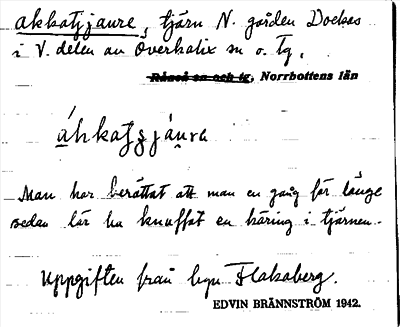 akkatjjaure, tjärn N. gården Dockas
i V. delen av Överkalix sn o. tg.
Råneå sn och tg, Norrbottens län
áhkatjjáu̯ra
Man har berättat att man en gång för länge
sedan lär ha knuffat en käring i tjärnen.
Uppgiften från byn Flakaberg.
EDVIN BRÄNNSTRÖM 1942.